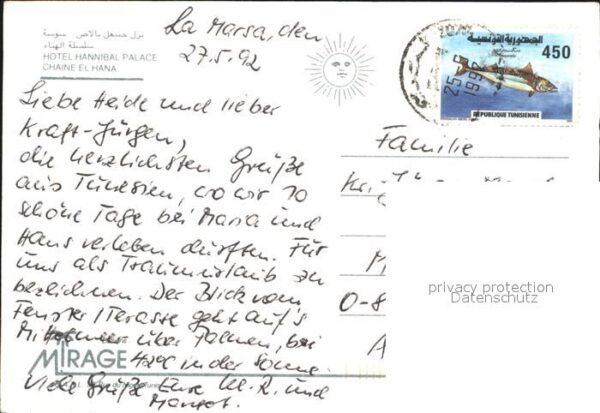 نزل حنبعل بالاص سوسة
سلسلة الهناء
HOTEL HANNIBAL PALACE
CHAINE EL HANA
La Marsa, den
27.5.92
Liebe Heide und lieber
Kraft-Jürgen,
die herzlichsten Grüße
aus Tunesien, wo wir 10
schöne Tage bei Maria und
Hans verleben durften. Für
uns als Traumurlaub zu
bezeichnen. Der Blick vom
Fenster / Terasse geht auf's
Mittelmeer über Palmen, bei
42°C in der Sonne.
Viele Grüße Eure M. R. und
Margot.
MIRAGE
الجمهورية التونسية
450
REPUBLIQUE TUNISIENNE
25
199
Familie
0-8
privacy protection
Datenschutz